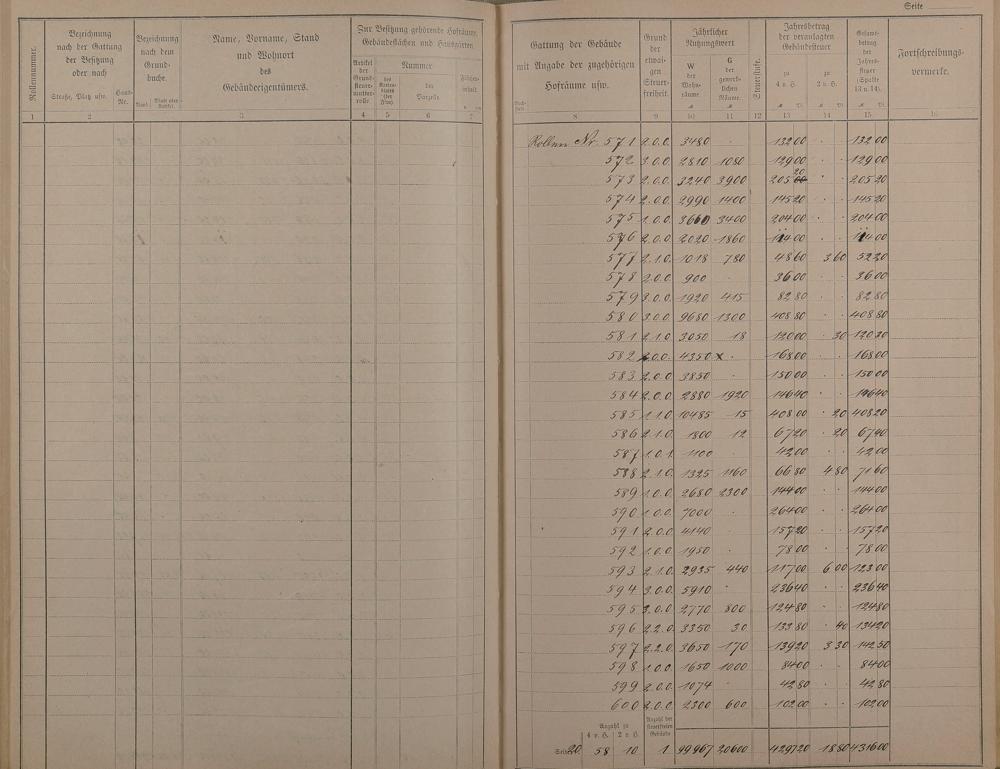 Seite
Rollennummer.
Bezeichnung nach der Gattung der Besitzung oder nach
Straße, Platz usw.
Haus-Nr.
Bezeichnung nach dem Grundbuche.
Band.
Name, Vorname, Stand und Wohnort des Gebäudeeigentümers.
Zur Besitzung gehörende Hofräume, Gebäudeflächen und Hausgärten
Nummer
der Parzelle.
Gattung der Gebäude mit Angabe der zugehörigen Hofräume usw.
Grund der etwaigen Steuerfreiheit.
Jährlicher Nutzungswert
W der Wohnräume
G der gewerblichen Räume.
Steuerstufe.
Jahresbetrag der veranlagten Gebäudesteuer
zu 4 v. H.
zu 2 v. H.
Gesamtbetrag der Jahressteuer (Spalte 13 u. 14).
Fortschreibungsvermerke.
1 2 3 4 5 6 7 8 9 10 11 13 14 15 16
Rollen Nr. 571 2.0.0. 3480 · 132 00 · · 132 00
572 3.0.0. 2810 1080 129 00 · · 129 00
573 2.0.0. 3240 3900 205 20 · · 205 20
574 2.0.0. 2990 1400 145 20 · · 145 20
575 1.0.0. 3660 3400 204 00 · · 204 00
576 2.0.0. 2020 1860 00 · · 00
577 2.1.0. 1018 780 48 60 3 60 52 20
578 2.0.0. 900 · 36 00 · · 36 00
579 3.0.0. 1920 415 82 80 · · 82 80
580 3.0.0. 9680 1300 408 80 · · 408 80
581 2.1.0. 3050 18 120 00 · 30 120 30
582 2.0.0. 4350 x · 168 00 · · 168 00
583 2.0.0 3850 · 150 00 · · 150 00
584 2.0.0. 2880 1920 146 40 · · 146 40
585 1.1.0. 10485 15 408 00 · 20 408 20
586 2.1.0. 1800 12 67 20 · 20 67 40
587 1.0.1. 1100 · 42 00 · · 42 00
588 2.1.0. 1325 1160 66 80 4 80 71 60
589 1.0.0. 2680 2300 144 00 · · 144 00
590 1.0.0. 7000 · 264 00 · · 264 00
591 2.0.0. 4140 · 157 20 · · 157 20
592 1.0.0. 1950 · 78 00 · · 78 00
593 2.1.0. 2935 440 117 00 6 00 123 00
594 3.0.0. 5910 · 236 40 · · 236 40
595 3.0.0. 2770 800 124 80 · · 124 80
596 2.2.0. 3350 30 133 80 · 40 134 20
597 2.2.0. 3650 170 139 20 3 30 142 50
598 1.0.0. 1650 1000 84 00 · · 84 00
599 2.0.0. 1074 · 42 80 · · 42 80
600 2.0.0. 2300 600 102 00 · · 102 00
Anzahl zu 4 v. H. 2 v. H.
Anzahl der steuerfreien Gebäude
Seite 20. 58 10 1 99967 20600 4297 20 18 80 4316 00